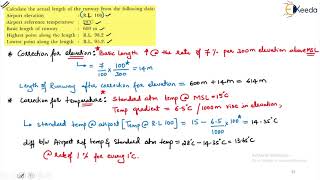 Ekeeda
Calculate the actual length of the runway from the following data:
Airport elevation : (R.L. 100)
Airport reference temperature : 28°
Basic length of runway : 600 m
Highest point along the length : R.L. 98.2
Lowest point along the length : R.L.
* Correction for elevation: Basic Length ↑ @ the rate of 7% per 300m elevation above MSL
= 7/100 x 100/300 x 600 = 14m
Length of Runway after correction for elevation = 600m + 14m = 614m
* Correction for temperature: Standard atm temp @ MSL = 15°C
Temp gradient = 6.5°C / 1000m rise in elevation
↳ standard temp @ airport [Temp @ R.L 100] = 15 - 6.5/1000 x 100 = 14.35°C
diff b/w Airport ref temp & Standard atm temp = 28° - 14.35°C = 13.65°C
@ rate of 1% for every 1°C.